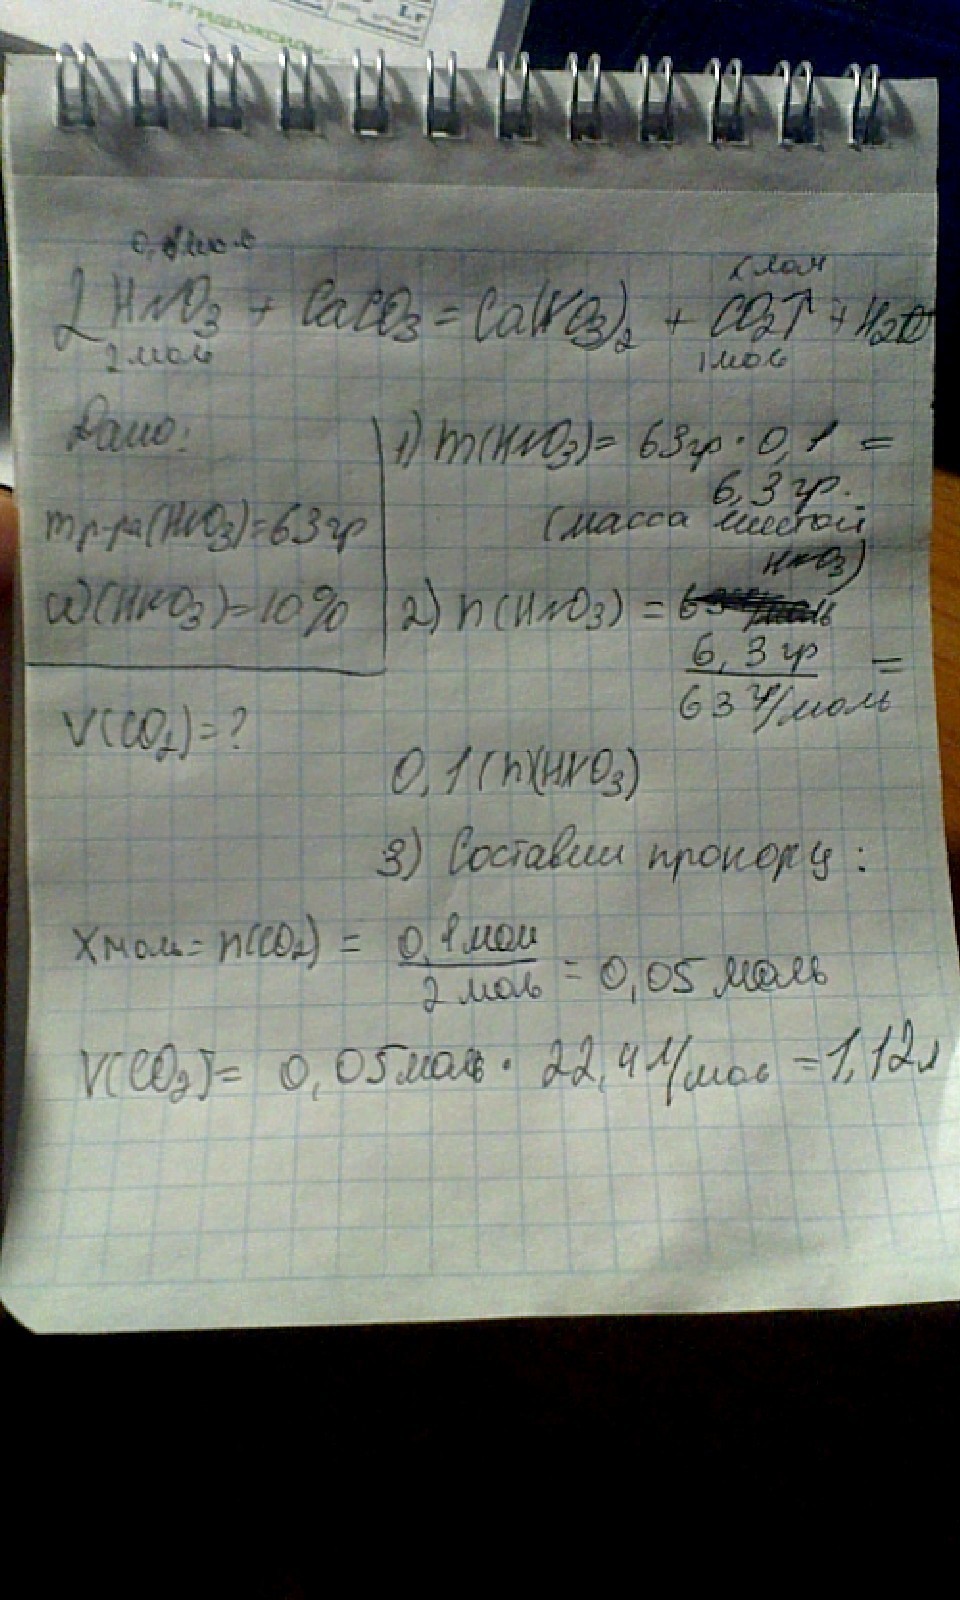 и гидроксиды
0,1 моль
x моль
2HNO3 + CaCO3 = Ca(NO3)2 + CO2↑ + H2O
2 моль
1 моль
Дано:
mр-ра(HNO3)=63гр
ω(HNO3)=10%
V(CO2)=?
1) m(HNO3)= 63гр · 0,1 =
6,3 гр.
(масса чистой
HNO3)
2) n(HNO3) =
6,3 гр
63 г/моль
=
0,1 (n)(HNO3)
3) Составим пропорц:
X моль = n(CO2) = 0,1 моль
2 моль
= 0,05 моль
V(CO2)= 0,05 моль · 22,4 л/моль = 1,12л